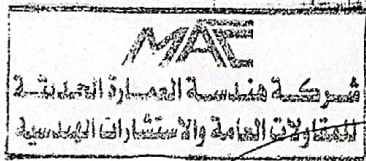 MAE
شركة هندسة العمارة الحديثة
للمقاولات العامة والاستشارات الهندسية